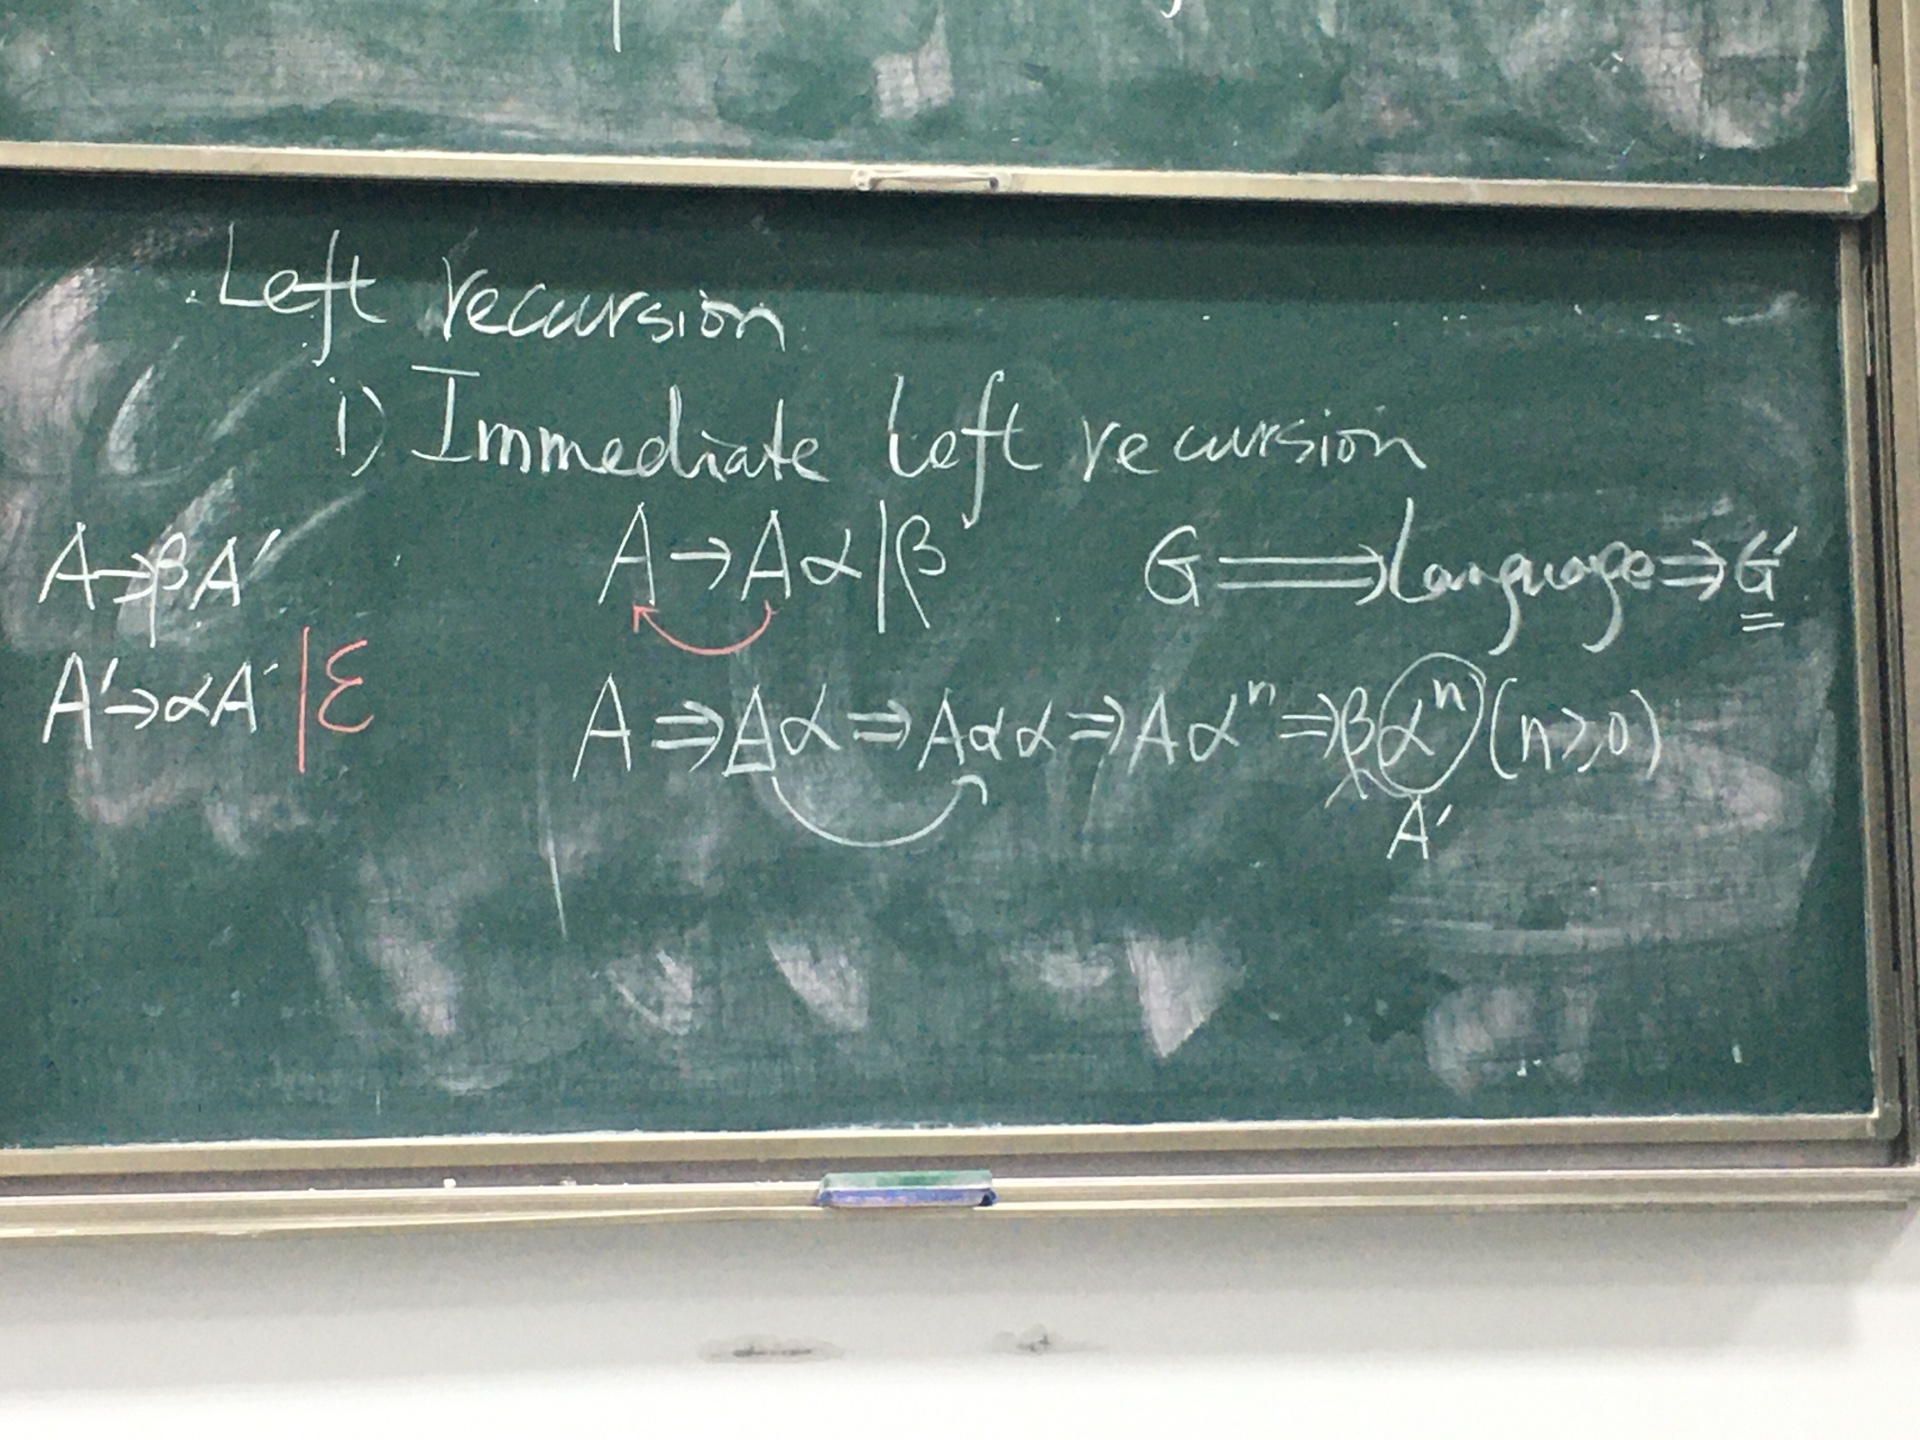 Left recursion
i) Immediate left recursion
A→βA′
A→Aα|β
G⟹Language⇒G′
A′→αA′|ε
A⇒Aα⇒Aαα⇒Aαⁿ⇒βαⁿ(n≥0)
A′